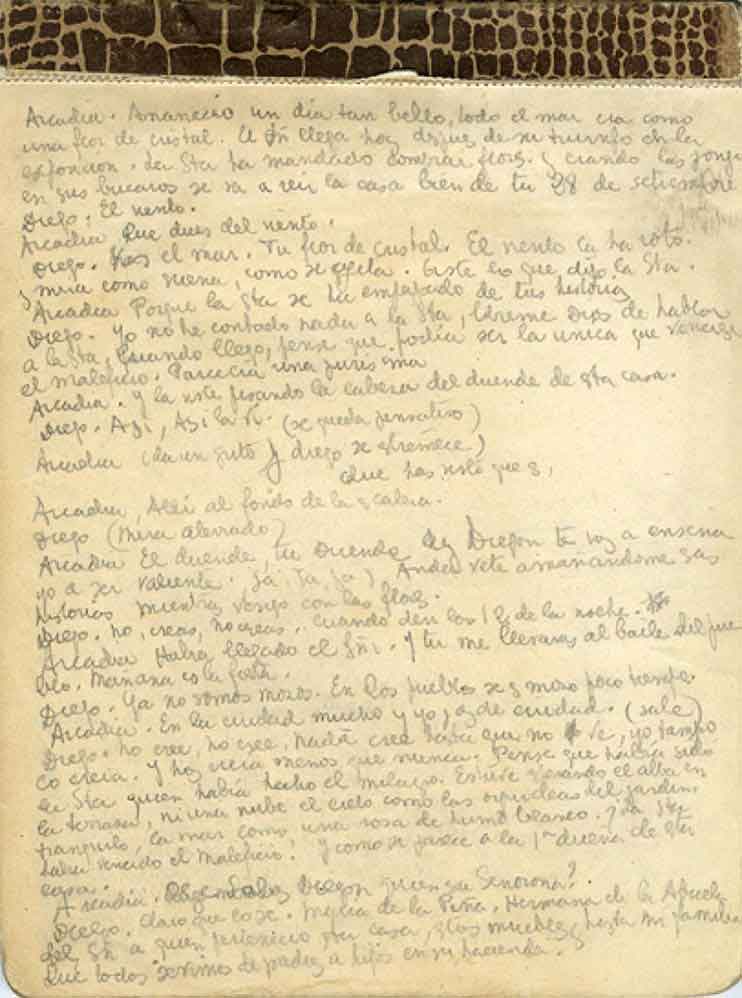 Arcadia. Amanecio, un dia tan bello, todo el mar era como
una flor de cristal. El Sñ llega hoy de su triunfo en la
La Sta ha mandado comprar flores y cuando las ponga
en sus bucaros se va a reir la casa bien de tu 28 de setiembre
Diego. El viento.
Arcadia Que dices del viento.
Diego. Ves el mar. Tu flor de cristal. El viento la ha roto.
y mira como suena, como se Esto es lo que dijo la Sta.
Arcadia Porque la Sta se ha empapado de tus historias
Diego. Yo no he contado nada a la Sta, libreme Dios de hablar
a la Sta, Cuando llego, pense que podia ser la unica que venciese
el maleficio. Parecia una purisima
Arcadia. y la viste pisando la cabeza del duende de esta casa.
Diego. Asi, Asi la vi. (se queda pensativo)
Arcadia (da un grito y diego se estremece)
que has visto que es,
Arcadia, Alli al fondo de la escalera.
Diego (mira aterrado)
Arcadia El duende, tu Duende Diegon te voy a enseña
yo a ser valiente. Ja, Ja, Ja) Anda vete amañandome sus
historias mientras vengo con las flores.
Diego. no, creas, no creas. cuando den las 12 de la noche.
Arcadia Habra llegado el Sñr. y tu me llevaras al baile del pue
blo. Mañana es la fiesta.
Diego. Ya no somos mozos. En los pueblos se es mozo poco tiempo
Arcadia. En la ciudad mucho y yo soy de ciudad. (sale)
Diego. no cree, no cree, nada cree hasta que no ve, yo tampo
co creia. y hoy creia menos que nunca. Pense que habia sido
la Sta quien habia hecho el milagro. Estuve viendo el alba en
la terraza, ni una nube el cielo como las orquideas del jardin
tranquilo, la mar como, una rosa de humo blanco. la Sta
habia vencido el maleficio. y como se parece a la 1ª dueña de esta
casa.
Arcadia. Diegon quien que Señorona?
Diego. Claro que lo se. de la Peña, Hermana de la Abuela
del Sñ a quien pertenecio esta casa, y los muebles y hasta mi familia
que todos servimos de padres a hijos en su hacienda.